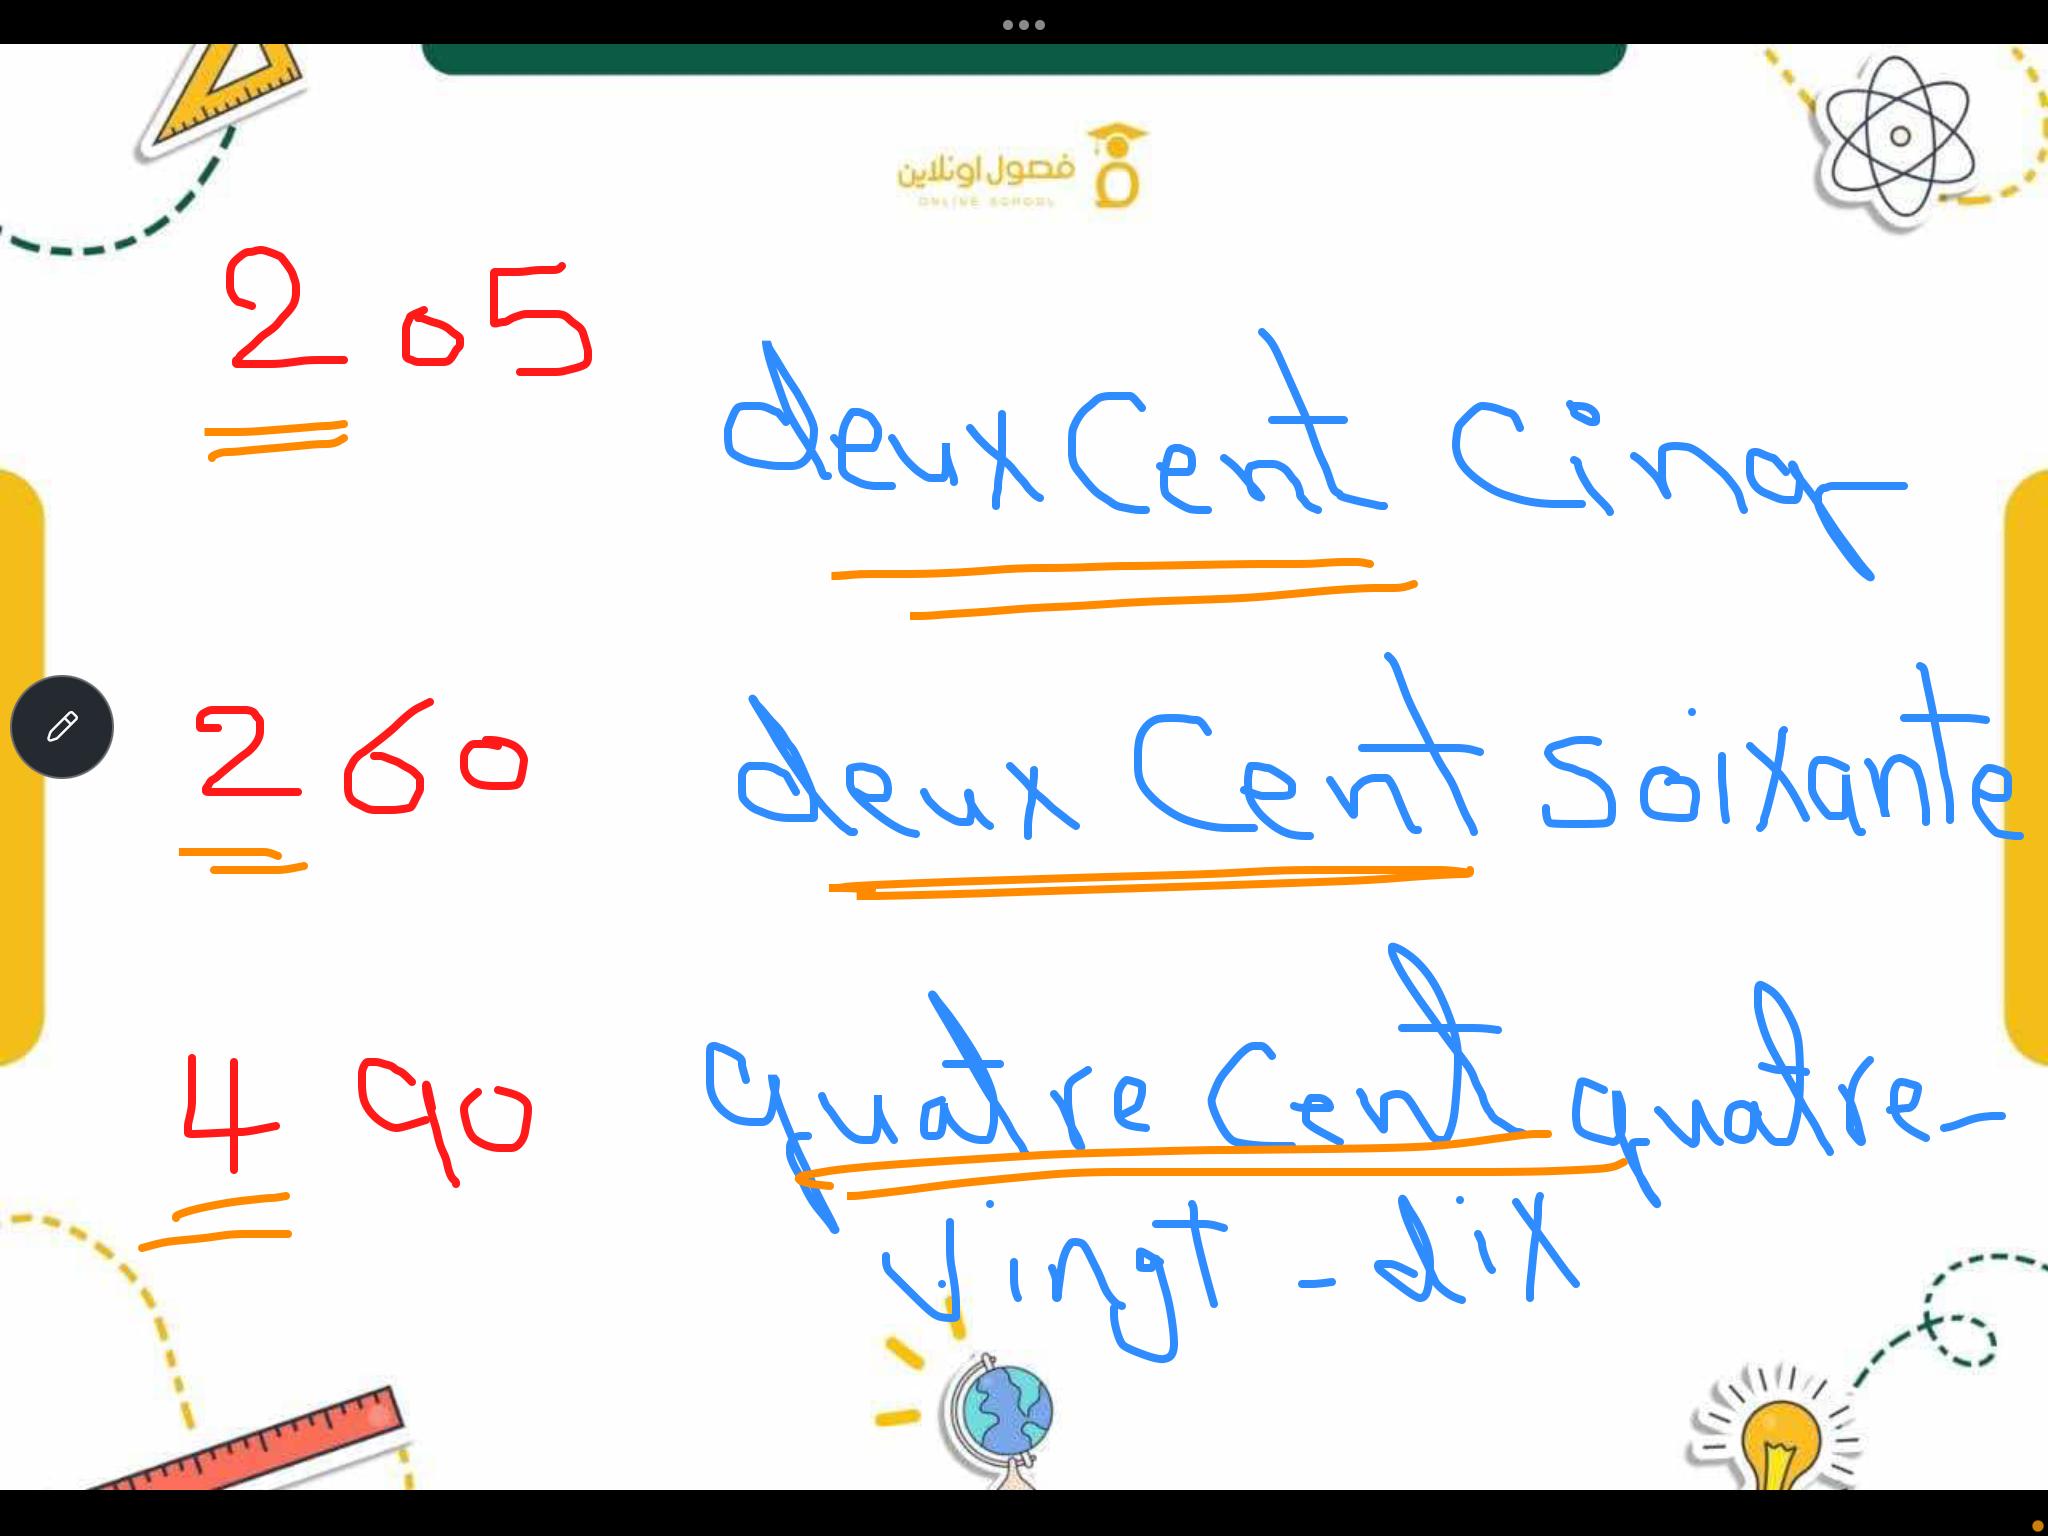 فصول اونلاين
ONLINE SCHOOL
205
deux Cent Cinq
260
deux Cent Soixante
4 90
quatre Cent quatre-
Vingt - dix